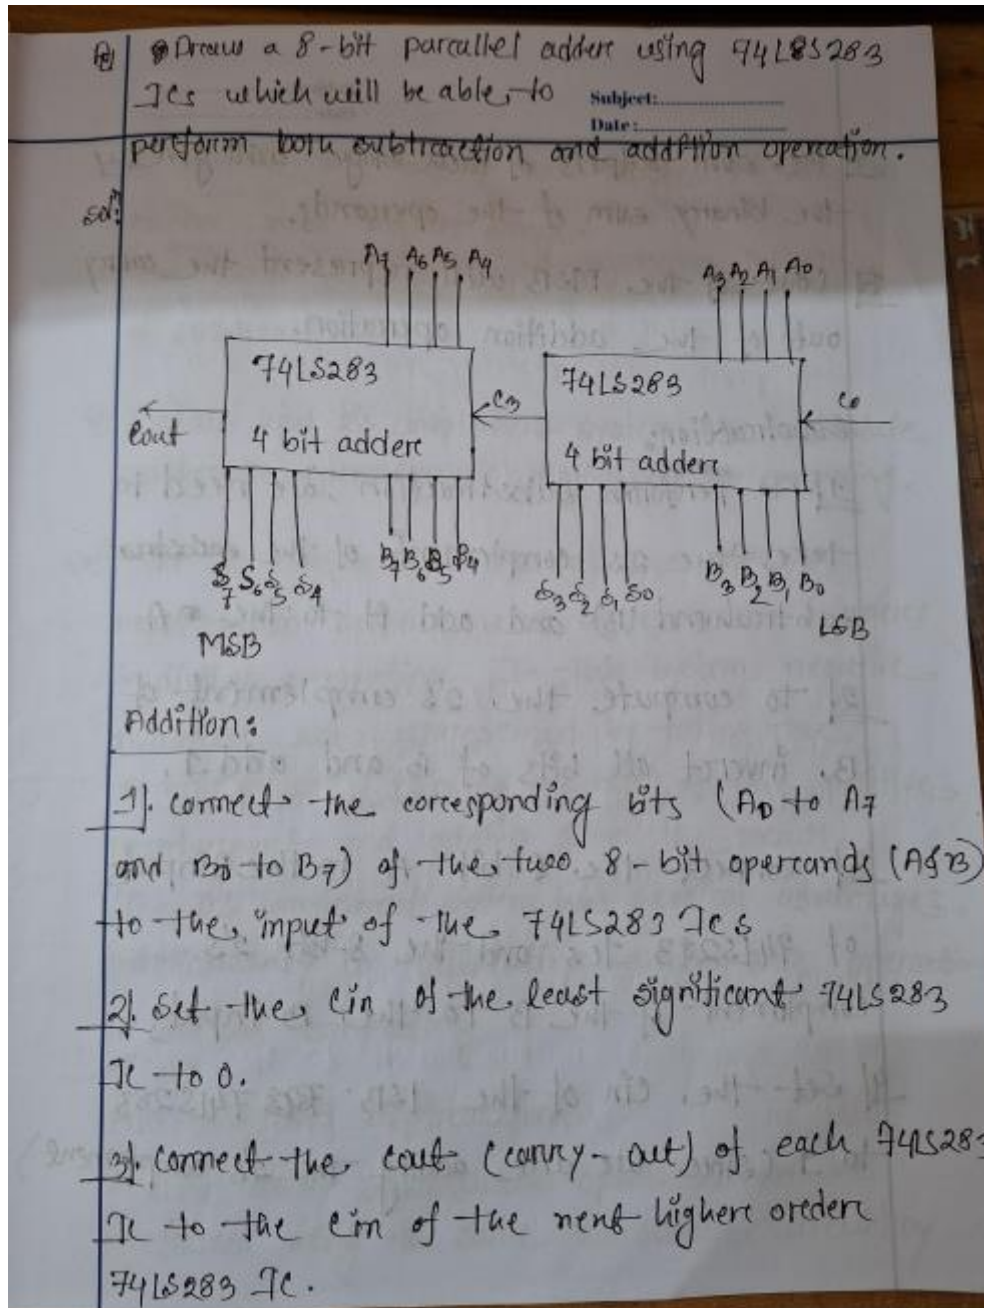 Draw a 8-bit parallel adder using 74L8S283
ICs which will be able to
Subject:
Date:
perform both subtraction and addition operation.
sol:
A7 A6 A5 A4
A3 A2 A1 A0
74LS283
4 bit adder
Cout
C3
74LS283
4 bit adder
C0
S7 S6 S5 S4
B7 B6 B5 B4
S3 S2 S1 S0
B3 B2 B1 B0
MSB
LSB
Addition:
1). connect the corresponding bits (A0 to A7
and B0 to B7) of the two 8-bit operands (A&B)
to the input of the 74LS283 ICs
2). set the Cin of the least significant 74LS283
IC to 0.
3). connect the cout (carry-out) of each 74LS283
IC to the Cin of the next higher order
74LS283 IC.